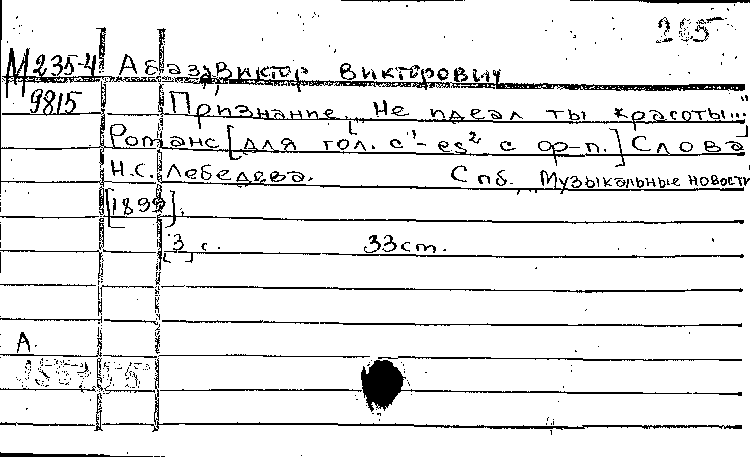 265
М 235-4 Абаза, Виктор Викторович
9815 Признание. [Не идеал ты красоты..."
Романс [для гол. c¹-es² с ф-п.] Слова
Н.С. Лебедева. Спб. Музыкальные новости
[1899].
[3] с. 33 cm.
А.